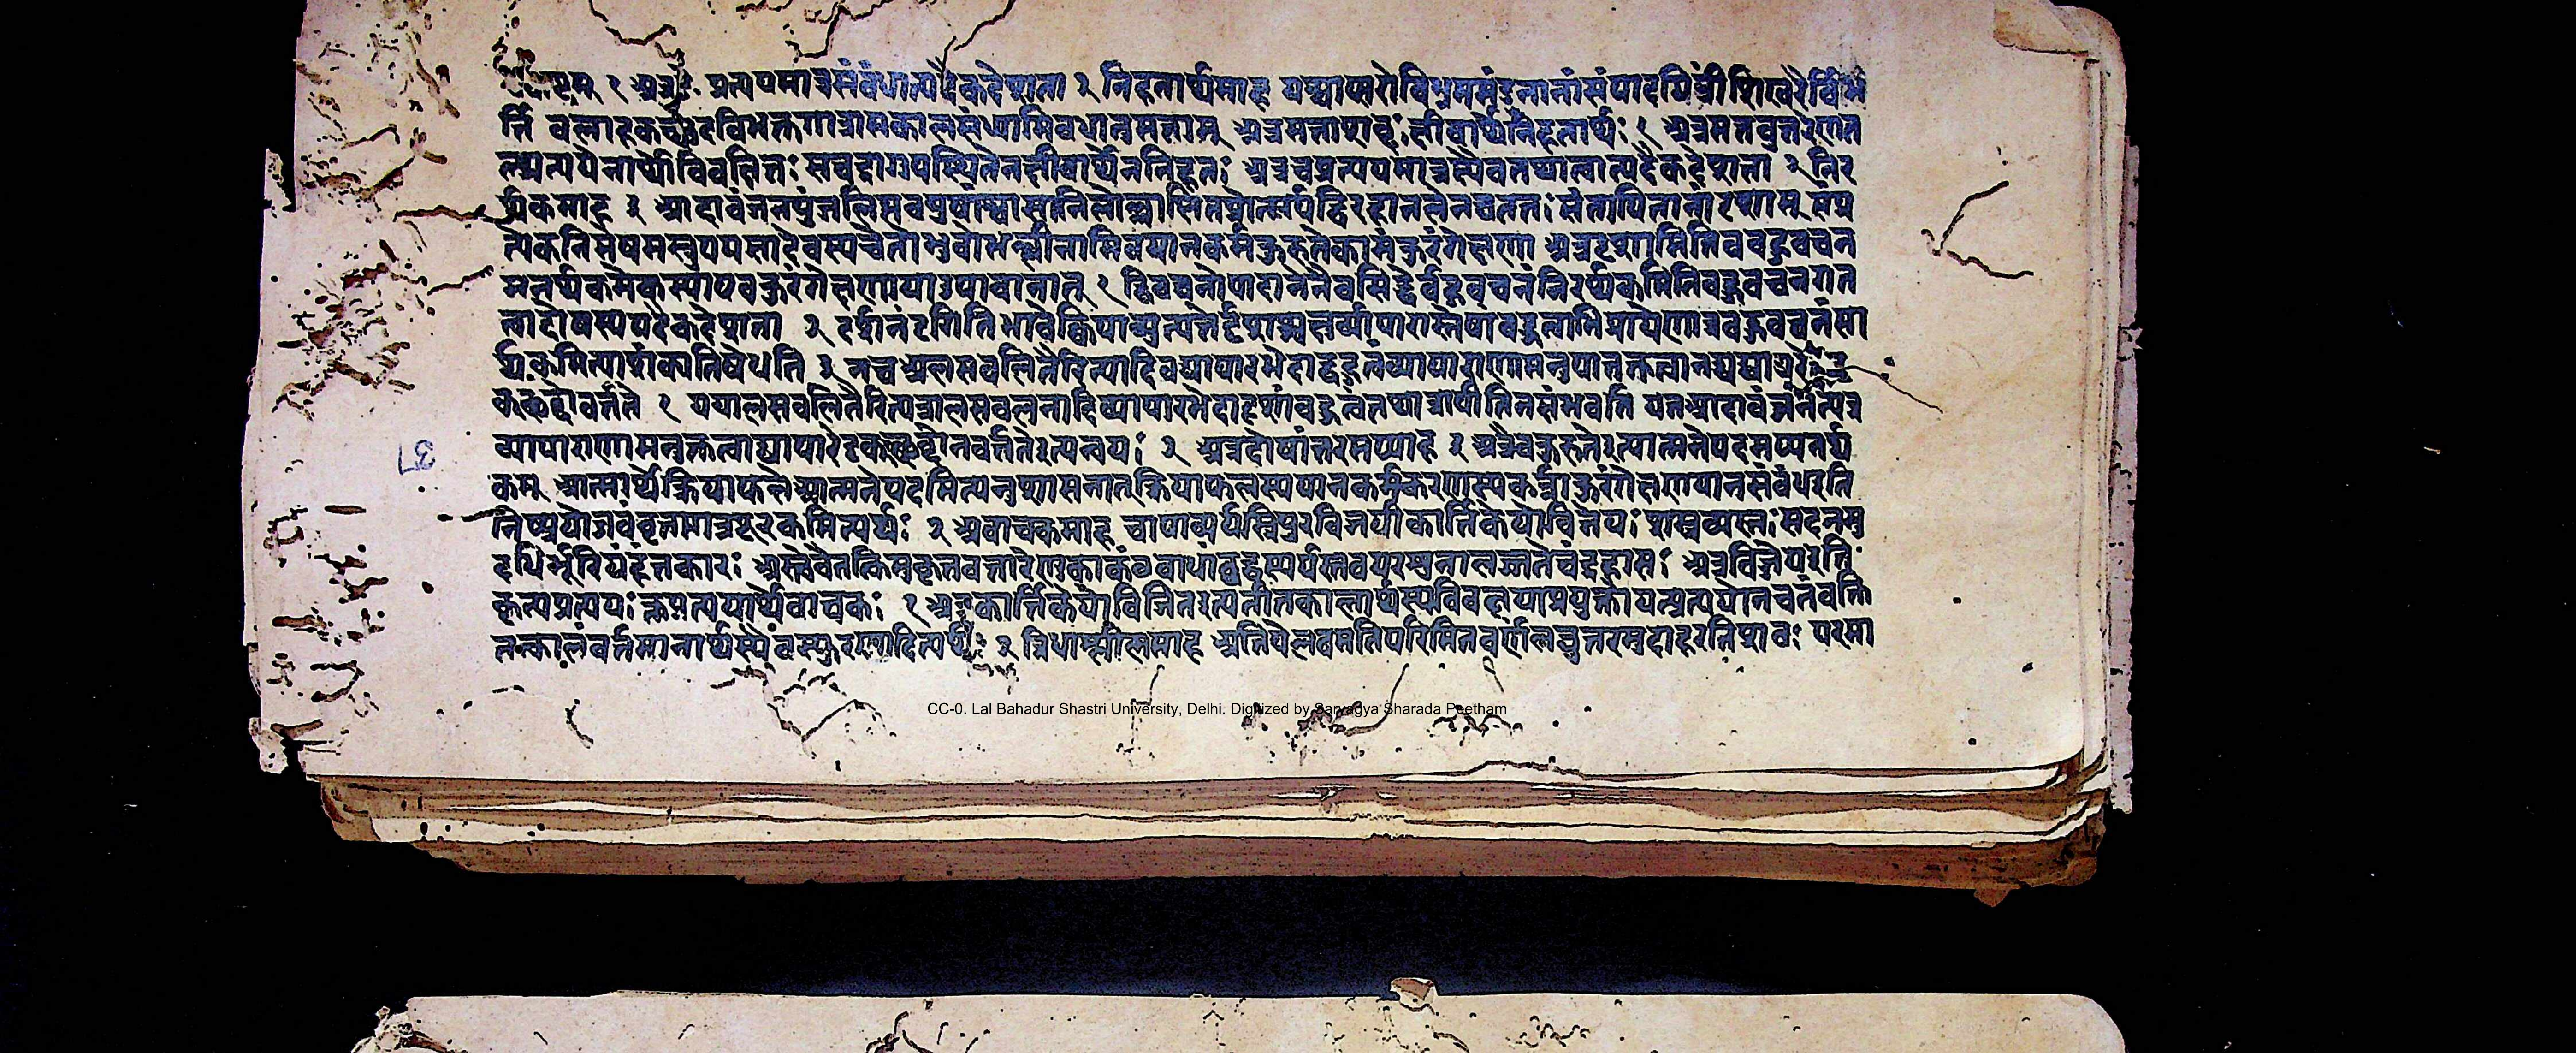 ष्टम् १ अत्र प्रत्ययमात्रसंबंधात्पदैकदेशता २ निहतार्थमाह यश्चाप्सरोविभ्रममंडनानांसंपादयित्रींशिखरैर्बिभ
र्त्ति बलाहकच्छेदविभक्तरागामकालसंध्यामिवधातुमत्ताम् अत्रमत्ताशब्दः क्षीबार्थेनिहतार्थः १ अत्रमतुबुत्तरेणत
ल्प्रत्ययेनार्थोविवक्षितः सचद्रागुपस्थितेनक्षीबार्थेननिहतः अत्रचप्रत्ययमात्रस्यैवतथात्वात्पदैकदेशता २ निर
र्थकमाह ३ आदावंजनपुंजलिप्तवपुषांश्वासानिलोल्लासितप्रोत्सर्पद्विरहानलेनचततः संतापितानांदृशाम् संप्र
त्येकनिर्मेषमस्तुपयसादेवस्यचेतोभुवोभल्लीनामिवपानकर्मकुरुतेकामंकुरंगेक्षणा अत्रदृशामितिबहुवचन
मनर्थकमेकस्याएवकुरंगेक्षणायाःउपादानात् १ द्विवचनोपादानेनैवसिद्धेर्बहुवचनंनिरर्थकमितिबहुवचनगत
त्वाद्दोषस्यपदैकदेशता २ दर्शनंदृगितिभावेक्विपाव्युत्पत्तेर्दृशश्चक्षुर्व्यापारास्तेषांबहुत्वाभिप्रायेणात्रबहुवचनंसा
र्थकमित्याशंक्यनिषेधति ३ नच अलसवलितैरित्यादिवद्व्यापारभेदाद्बहुत्वंव्यापाराणामनुपात्तत्वात् नचव्यापारे
दृक्शब्दोवर्त्तते १ यथालसवलितैरित्यत्रालसवलनादिव्यापारभेदादृशांबहुत्वंतथात्रापीतिनसंभवति यतआदावंजनेत्यत्र
व्यापाराणामनुक्तत्वाद्व्यापारेदृक्शब्दोनवर्त्ततेइत्यन्वयः २ अत्रदोषांतरमप्याह ३ अत्रैवकुरुतेइत्यात्मनेपदमप्यनर्थ
कम् आत्मार्थेक्रियाफलेआत्मनेपदमित्यनुशासनात् क्रियाफलस्यपानकर्मकरणस्यकर्त्र्याकुरंगेक्षणयानसंबंधइति
निष्प्रयोजनंवृत्तमात्रपूरकमित्यर्थः २ अवाचकमाह चापाचार्यस्त्रिपुरविजयीकार्त्तिकेयोविजेयः शस्त्रव्यस्तः सदनमु
दधिर्भूरियंहंतकारः अस्त्येवैतत्किमुकृतवतारेणुकाकंठबाधांबद्धस्पर्धस्तवपरशुनालज्जतेचंद्रहासः अत्रविजेयइति
कृत्यप्रत्ययः क्तप्रत्ययार्थेवाचकः १ अत्रकार्त्तिकेयोविजितइत्यतीतकालार्थस्यविवक्षयाप्रयुक्तोयत्प्रत्ययोनचतंवक्ति
तत्कालंवर्तमानार्थस्यैवस्फुरणादित्यर्थः २ त्रिधाश्लीलमाह अतिपेलवमतिपरिमितवर्णंलघुतरमुदाहरतिशठः परमा
37
CC-0. Lal Bahadur Shastri University, Delhi. Digitized by Sarvagya Sharada Peetham